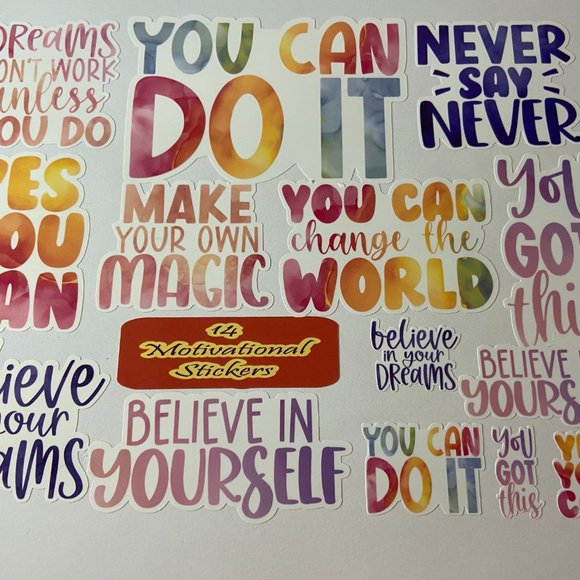 DREAMS
DON'T WORK
unless
YOU DO
YOU CAN
DO IT
NEVER
SAY
NEVER
YES
YOU
CAN
MAKE
YOUR OWN
MAGIC
YOU CAN
change the
WORLD
YOU
GOT
this
14
Motivational
Stickers
believe
in your
DREAMS
BELIEVE IN
YOURSELF
believe
in your
DREAMS
BELIEVE IN
YOURSELF
YOU CAN
DO IT
YOU
GOT
this
YE
YO
C